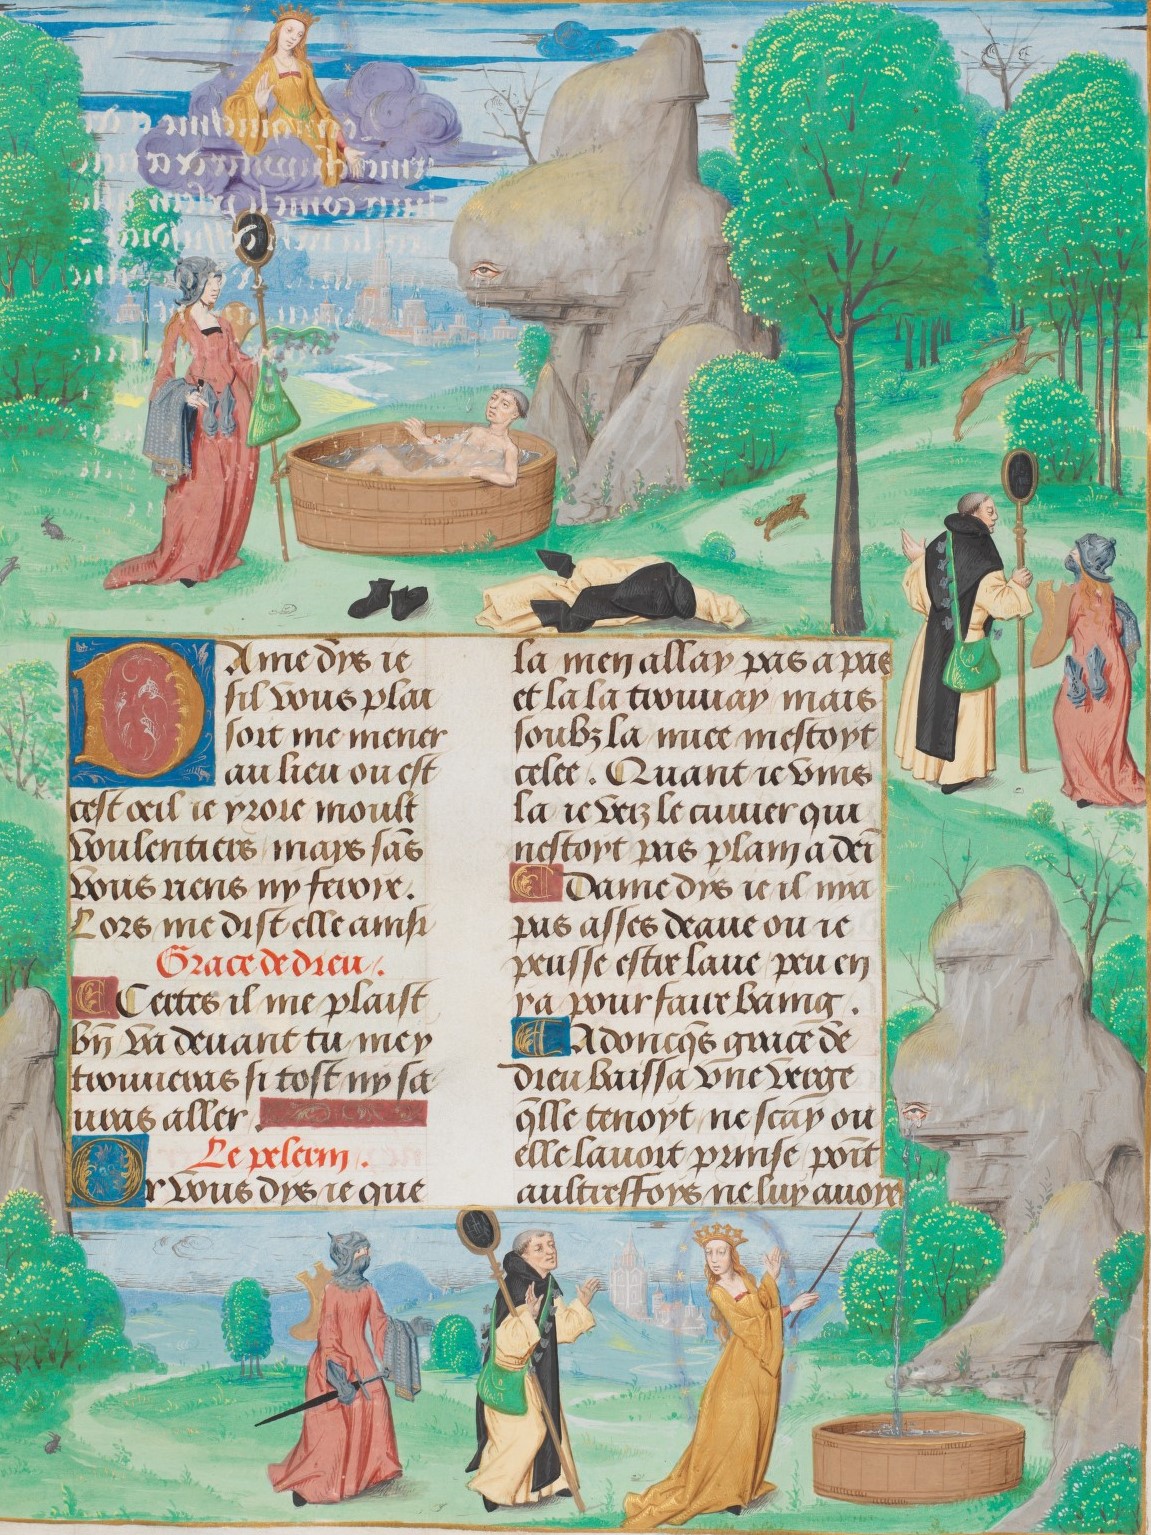 Dame dys ie
sil vous plai
soit me mener
au lieu ou est
cest oeil ie yroie moult
voulentiers mays sās
vous riens ny feroye.
Lors me dist elle ainsi
Grace de dieu.
Certes il me plaist
bn̄ va deuant tu mey
trouueras si tost ny sa
uras aller.
Le pelerin.
Or vous dys ie que
la men allay pas a pas
et la la trouuay mais
soubz la nuee mestoyt
celee. Quant ie vins
la ie veiz le cuuier qui
nestoyt pas plain a dei
Dame dys ie il nya
pas asses deaue ou ie
peusse estre laue peu en
ya pour faire baing.
Adoncq̄s grace de
dieu baissa vne verge
q̄lle tenoyt ne scay ou
elle lauoit prinse poīt
aultreffoys ne luy auoye